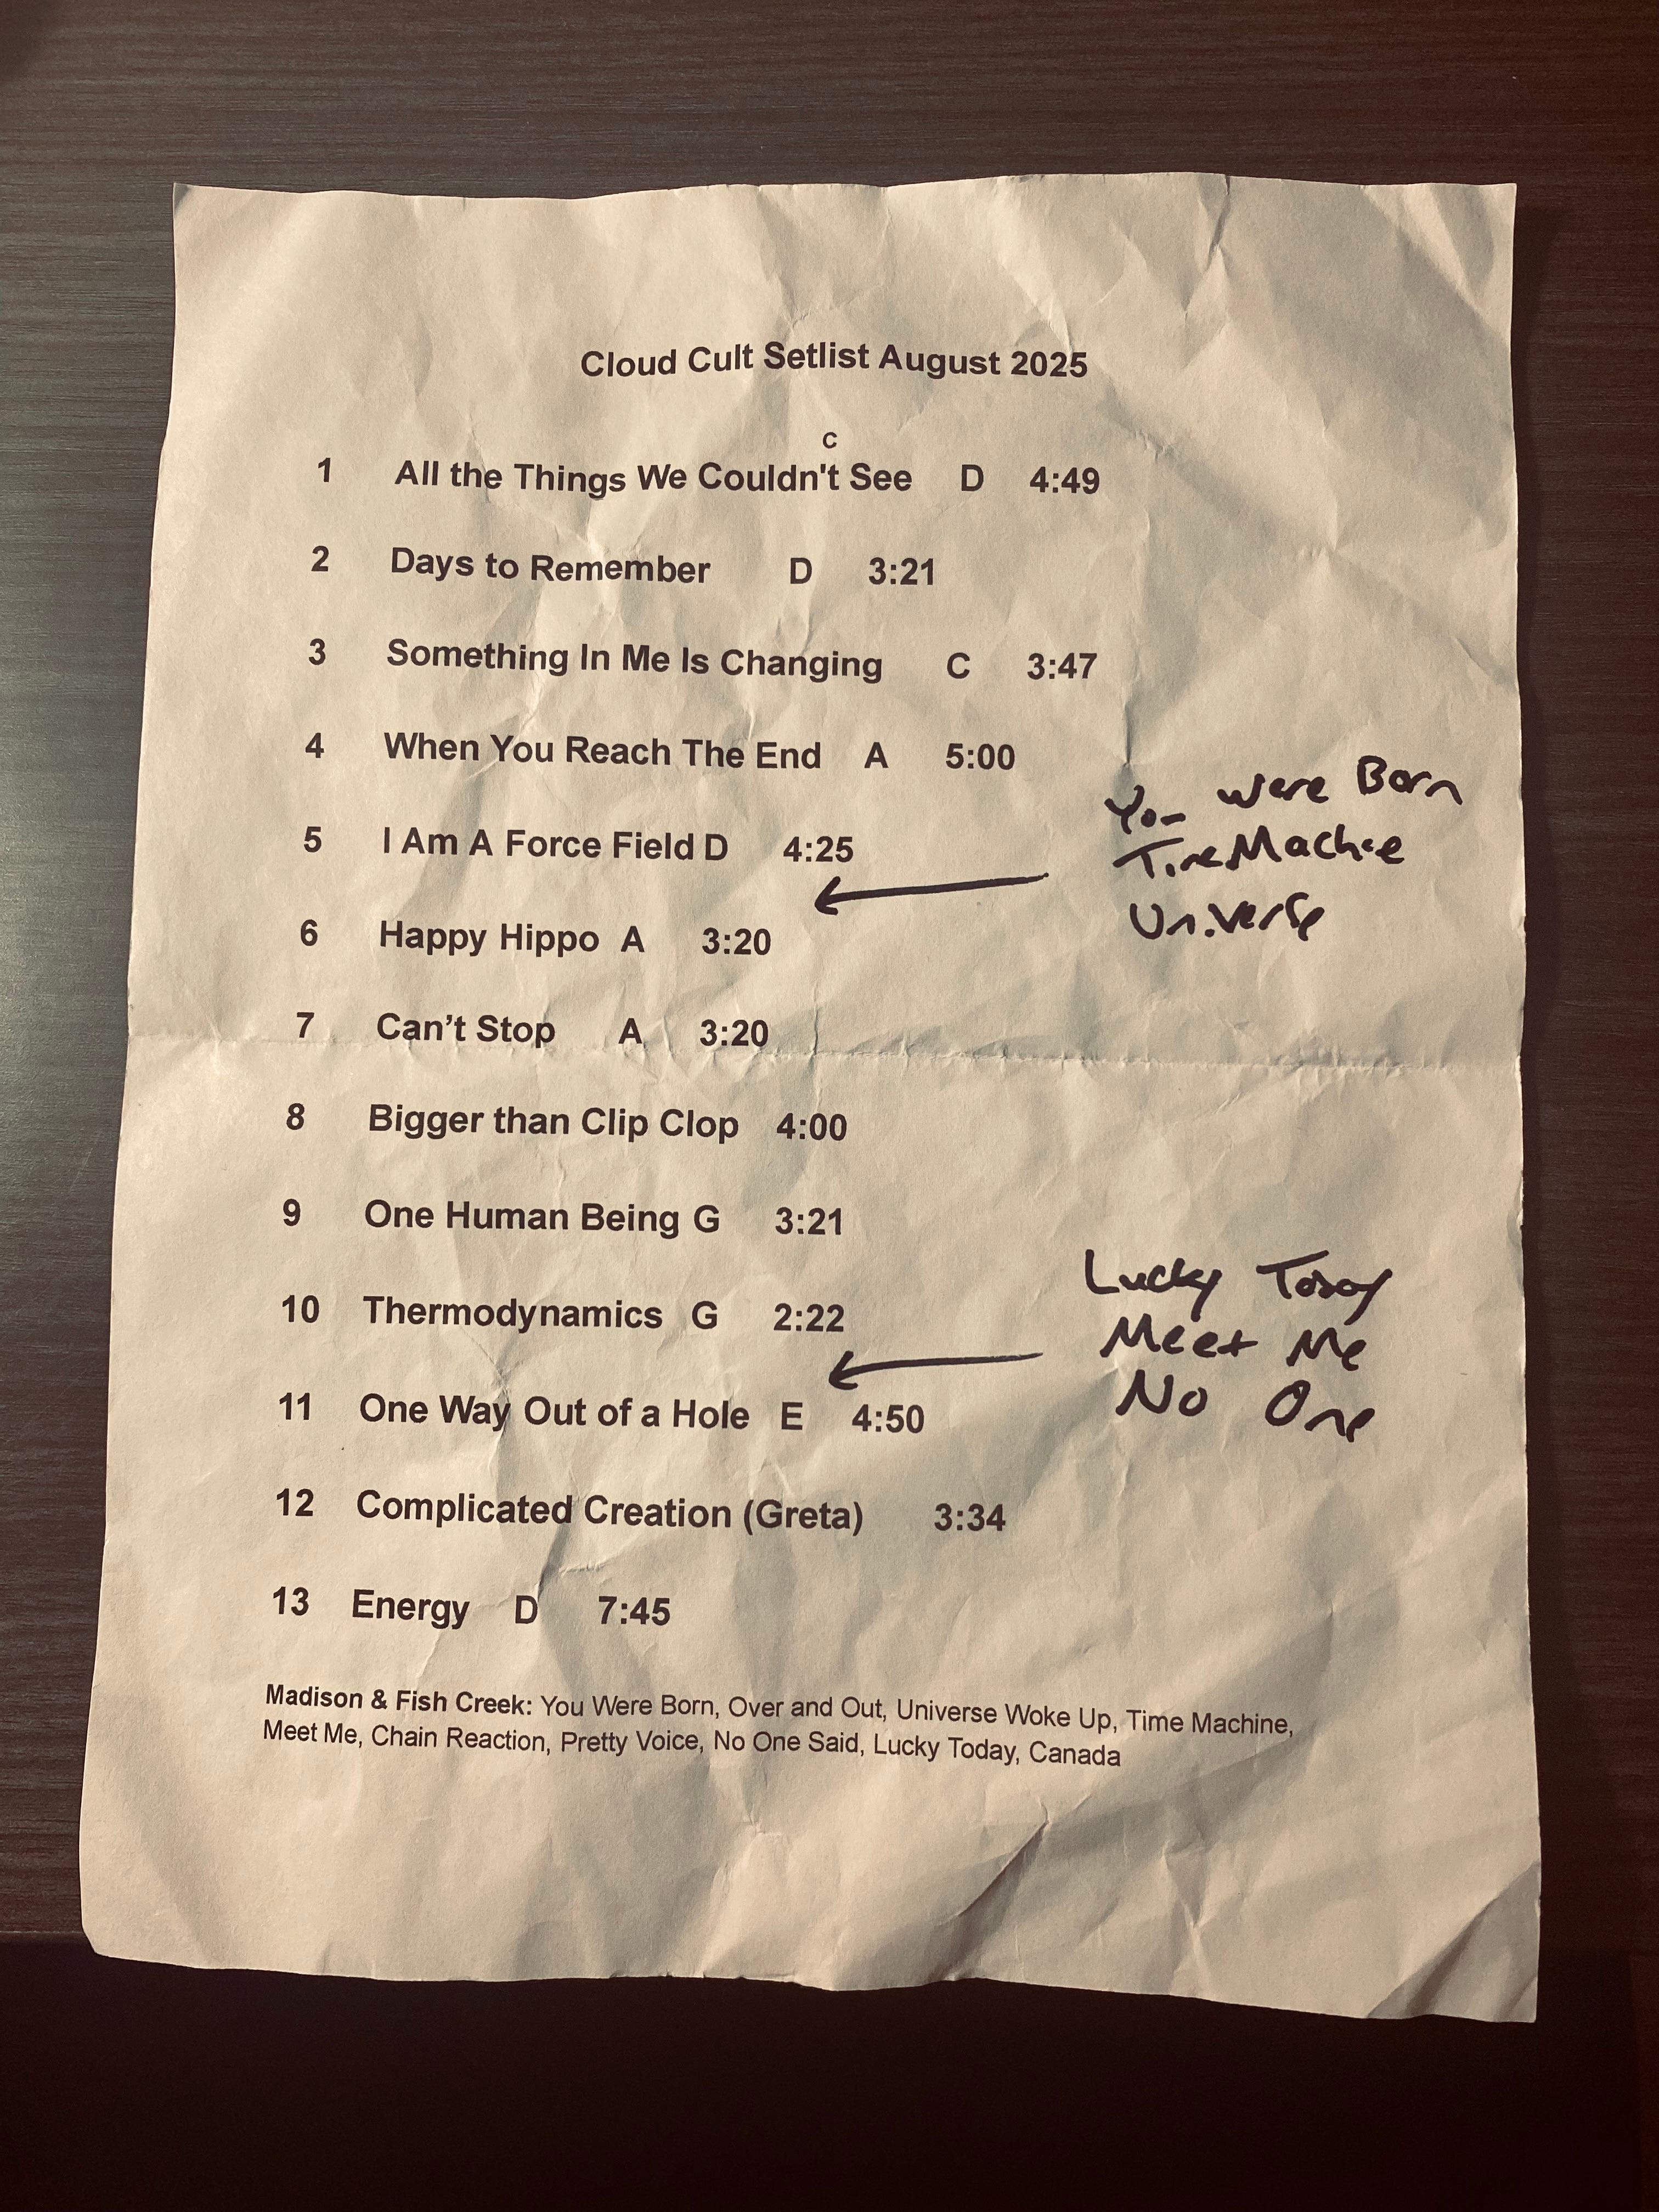 Cloud Cult Setlist August 2025
c
1 All the Things We Couldn't See D 4:49
2 Days to Remember D 3:21
3 Something In Me Is Changing C 3:47
4 When You Reach The End A 5:00
You Were Born
Time Machine
Universe
5 I Am A Force Field D 4:25
6 Happy Hippo A 3:20
7 Can’t Stop A 3:20
8 Bigger than Clip Clop 4:00
9 One Human Being G 3:21
10 Thermodynamics G 2:22
Lucky Today
Meet Me
No One
11 One Way Out of a Hole E 4:50
12 Complicated Creation (Greta) 3:34
13 Energy D 7:45
Madison & Fish Creek: You Were Born, Over and Out, Universe Woke Up, Time Machine,
Meet Me, Chain Reaction, Pretty Voice, No One Said, Lucky Today, Canada